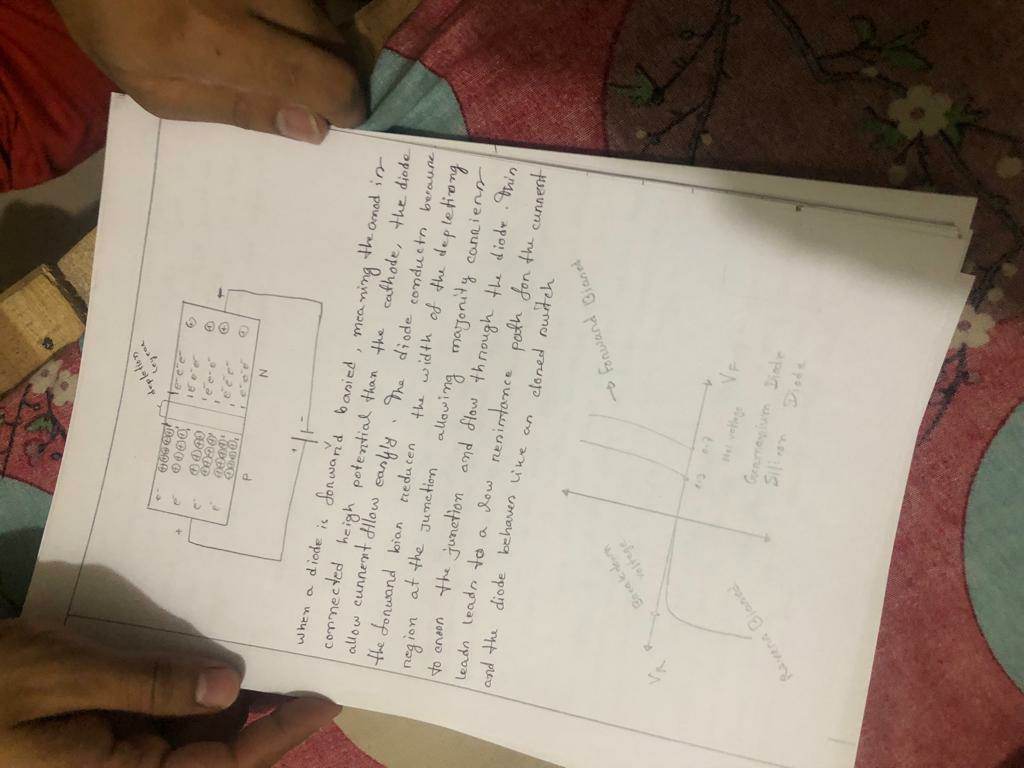 depletion
leyear
e⁻ ⊕⊕⊕⊕ e⁻e⁻e⁻ ⊕
e⁻ ⊕⊕⊕⊕ e⁻e⁻e⁻ ⊕
e⁻ ⊕⊕⊕⊕ e⁻e⁻e⁻ ⊕
e⁻ ⊕⊕⊕⊕ e⁻e⁻e⁻ ⊕
⊕⊕⊕⊕ e⁻e⁻e⁻
+
P N
+ -
V
when a diode is forward basied, meaning the anod is
connected heigh potential than the cathode, the diode
allow current flow easyly. The diode conducts because
the forward bias reduces the width of the depletiong
region at the junction allowing majority carriers
to cross the junction and flow through the diode. This
leads leads to a low resistance path for the current
and the diode behaves like an closed switch
→ Forward Biased
Breakdown
voltage
VR
0.3 0.7
VF
voltage
Germenium Diode
Silicon Diode
Revers Biased